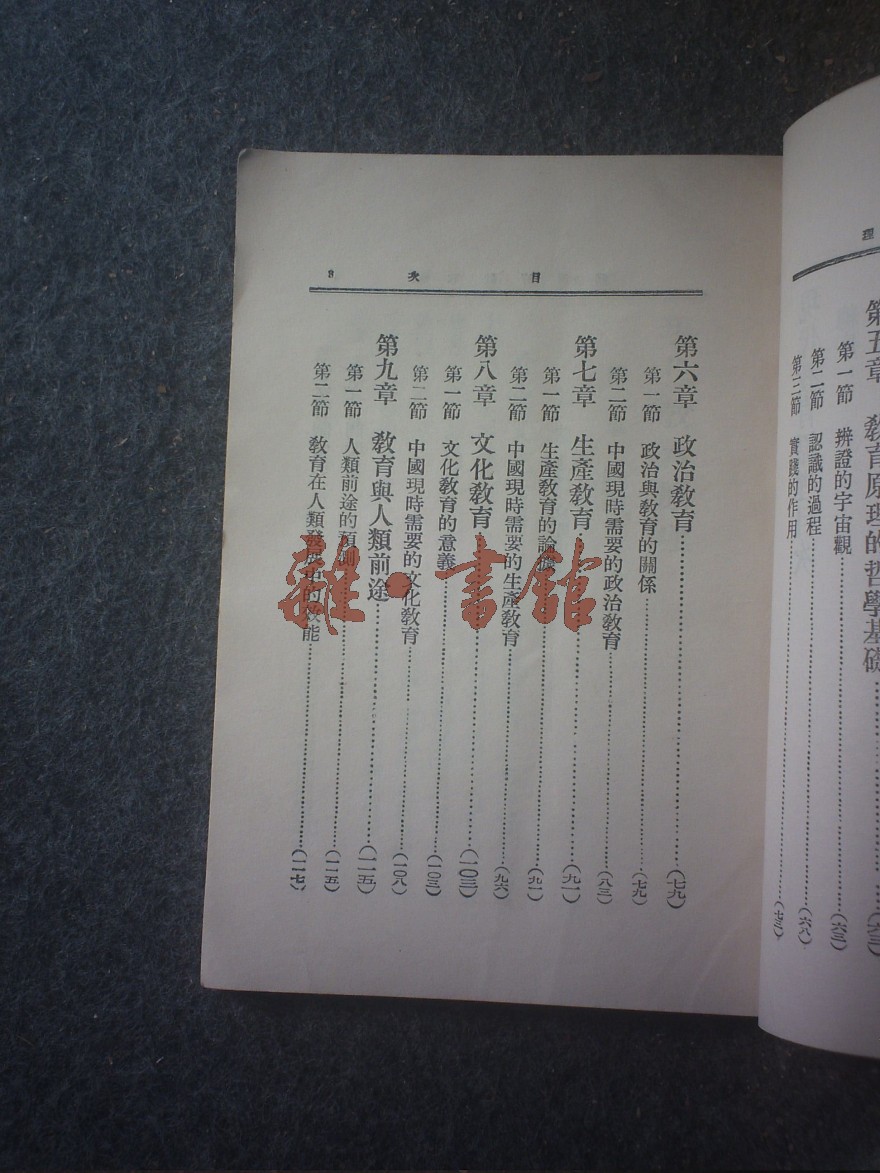 理
第五章 教育原理的哲學基礎……(六三)
第一節 辨證的宇宙觀……(六三)
第二節 認識的過程……(六八)
第三節 實踐的作用……(七三)
目 次 3
第六章 政治教育……(七九)
第一節 政治與教育的關係……(七九)
第二節 中國現時需要的政治教育……(八三)
第七章 生產教育……(九一)
第一節 生產教育的論……(九一)
第二節 中國現時需要的生產教育……(九六)
第八章 文化教育……(一〇三)
第一節 文化教育的意義……(一〇三)
第二節 中國現時需要的文化教育……(一〇八)
第九章 教育與人類前途……(一一五)
第一節 人類前途的預測……(一一五)
第二節 教育在人類發展中的效能……(一一七)
雜·書館